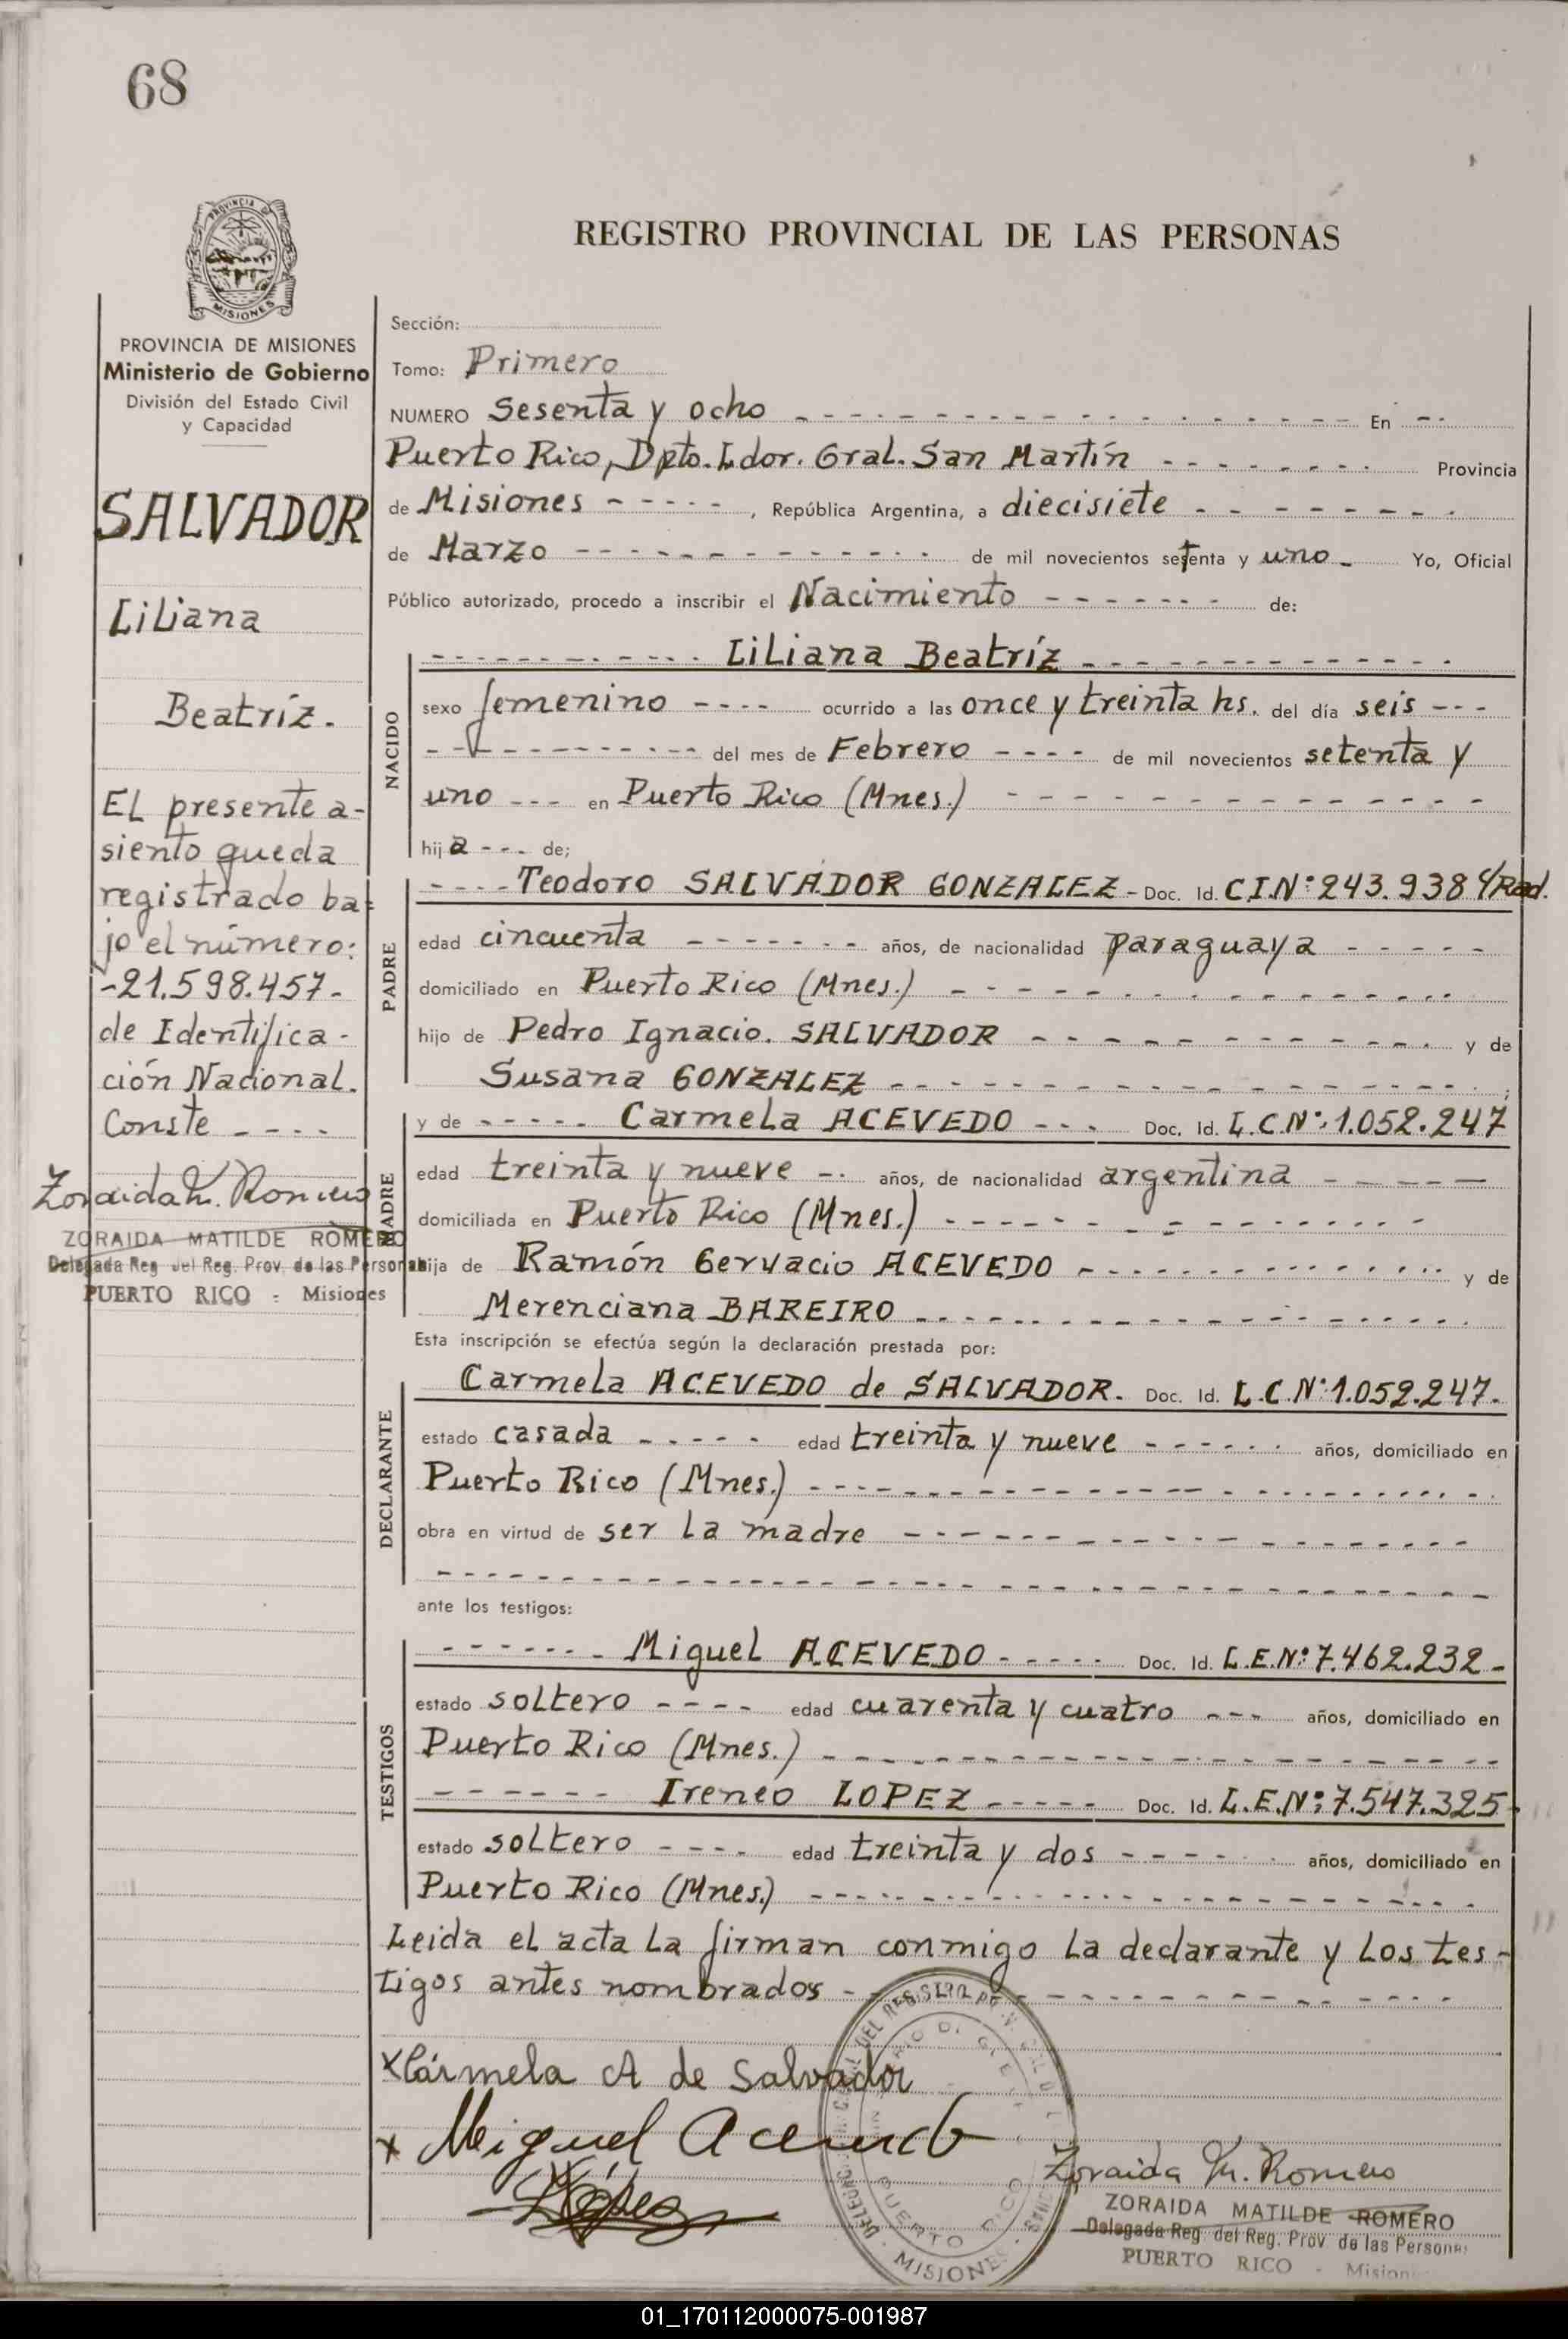 68
PROVINCIA DE
MISIONES
REGISTRO PROVINCIAL DE LAS PERSONAS
PROVINCIA DE MISIONES
Ministerio de Gobierno
División del Estado Civil
y Capacidad
SALVADOR
Liliana
Beatríz.
EL presente a-
siento queda
registrado ba-
jo el número:
-21.598.457-
de Identifica-
ción Nacional.
Conste ----
Zoraida M. Romero
ZORAIDA MATILDE ROMERO
Delegada Reg del Reg. Prov. de las Personas
PUERTO RICO - Misiones
Sección:
Tomo: Primero
NUMERO Sesenta y ocho --- En --
Puerto Rico, Dpto. Ldor. Gral. San Martín --- Provincia
de Misiones ----- , República Argentina, a diecisiete ---
de Marzo --- de mil novecientos setenta y uno - Yo, Oficial
Público autorizado, procedo a inscribir el Nacimiento --- de:
NACIDO
--- Liliana Beatríz ---
sexo femenino ---- ocurrido a las once y treinta hs. del día seis ---
--- del mes de Febrero ---- de mil novecientos setenta y
uno --- en Puerto Rico (Mnes.) ---
hija --- de;
PADRE
---- Teodoro SALVADOR GONZALEZ - Doc. Id. C.I.Nº 243.938 4/Rad.
edad cincuenta --- años, de nacionalidad paraguaya -----
domiciliado en Puerto Rico (Mnes.) ---
hijo de Pedro Ignacio. SALVADOR --- y de
Susana GONZALEZ --- ;
MADRE
y de ----- Carmela ACEVEDO --- Doc. Id. L.C.Nº 1.052.247
edad treinta y nueve -- años, de nacionalidad argentina -----
domiciliada en Puerto Rico (Mnes.) ---
hija de Ramón Gervacio ACEVEDO --- y de
Merenciana BAREIRO ---
Esta inscripción se efectúa según la declaración prestada por:
DECLARANTE
Carmela ACEVEDO de SALVADOR. Doc. Id. L.C.Nº 1.052.247.
estado casada ----- edad treinta y nueve ------ años, domiciliado en
Puerto Rico (Mnes.) ---
obra en virtud de ser la madre ---
---
ante los testigos:
TESTIGOS
------- Miguel ACEVEDO ----- Doc. Id. L.E.Nº 7.462.232-
estado soltero ---- edad cuarenta y cuatro --- años, domiciliado en
Puerto Rico (Mnes.) ---
------ Ireneo LOPEZ ----- Doc. Id. L.E.Nº: 7.547.325-
estado soltero ---- edad treinta y dos ------ años, domiciliado en
Puerto Rico (Mnes.) ---
Leida el acta la firman conmigo la declarante y los tes-
tigos antes nombrados ---
x Cármela A de Salvador
x Miguel Acevedo
López
PUERTO RICO
MISIONES
Zoraida M. Romero
ZORAIDA MATILDE ROMERO
Delegada Reg. del Reg. Prov. de las Personas
PUERTO RICO - Misiones
01_170112000075-001987